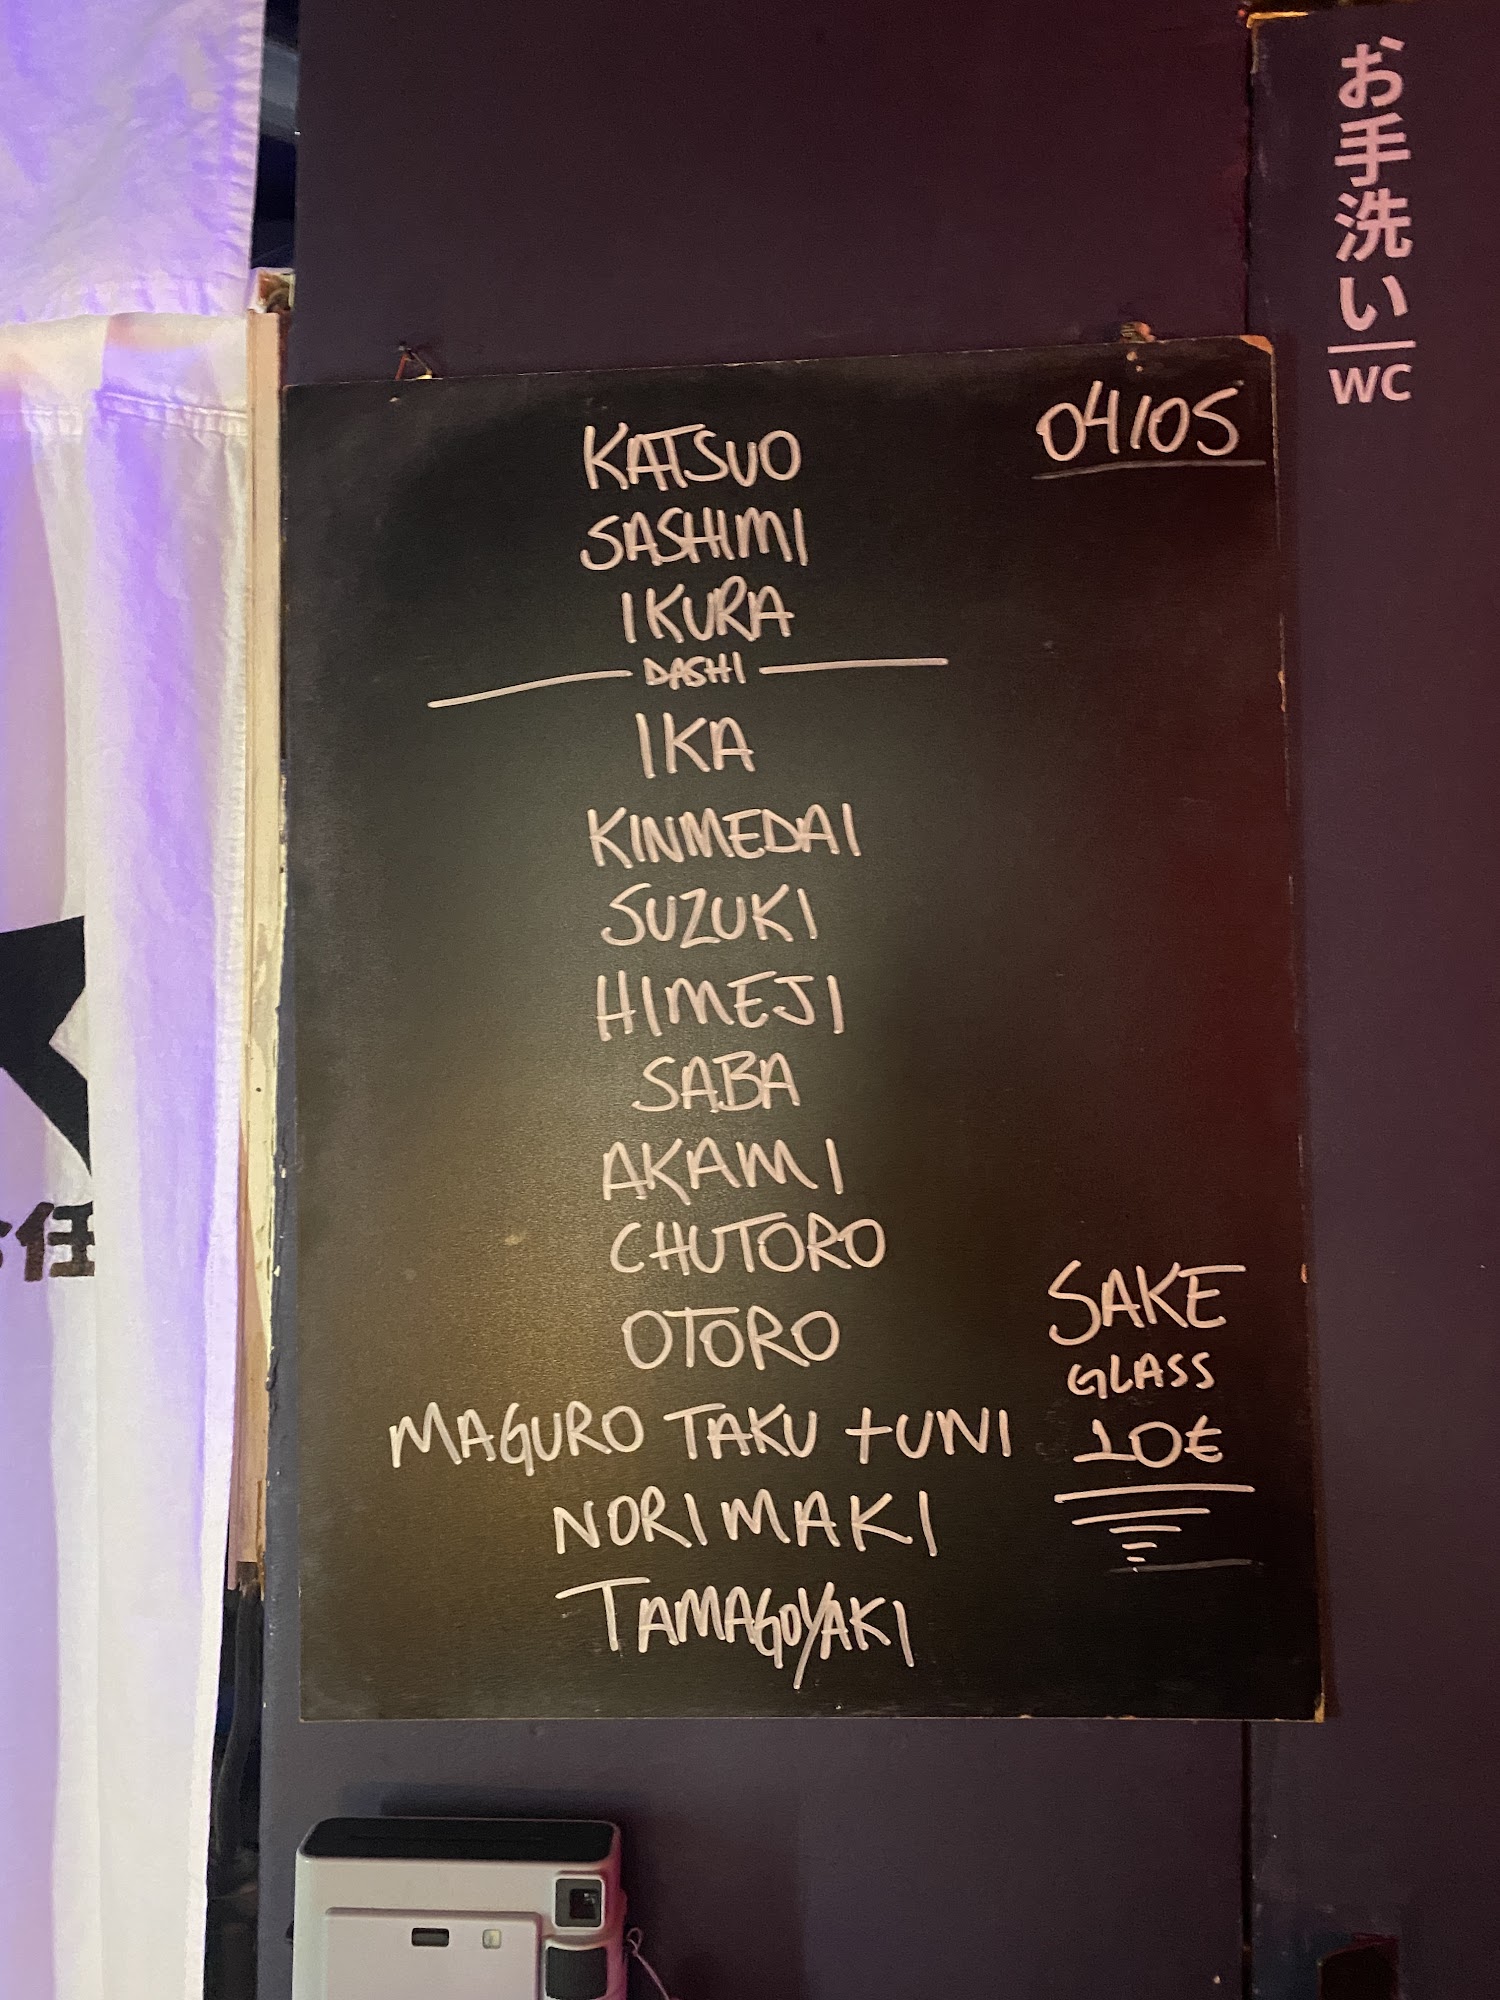 お手洗い
WC
04/05
KATSUO
SASHIMI
IKURA
DASHI
IKA
KINMEDAI
SUZUKI
HIMEJI
SABA
AKAMI
CHUTORO
OTORO
MAGURO TAKU + UNI
NORIMAKI
TAMAGOYAKI
SAKE
GLASS
10€
お任